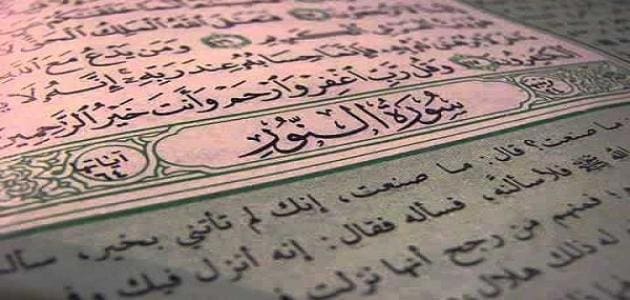 فَتَعَٰلَى ٱللَّهُ ٱلْمَلِكُ ٱلْحَقُّ
وَمَن يَدْعُ مَعَ
فَإِنَّمَا حِسَابُهُۥ عِندَ رَبِّهِۦٓ إِنَّهُۥ لَا
وَقُل رَّبِّ ٱغْفِرْ وَٱرْحَمْ وَأَنتَ خَيْرُ ٱلرَّٰحِمِينَ
سُورَةُ النُّورِ
آياتها ٦٤
ما صنعت؟ قال: ما صنعت، إنك لم تأتني بخير، سأله
الله ﷺ فلأسألنه، فسأله فقال: إنه أنزل فيك وفي
، فمنهم من رجح أنها نزلت
له ذلك هلال